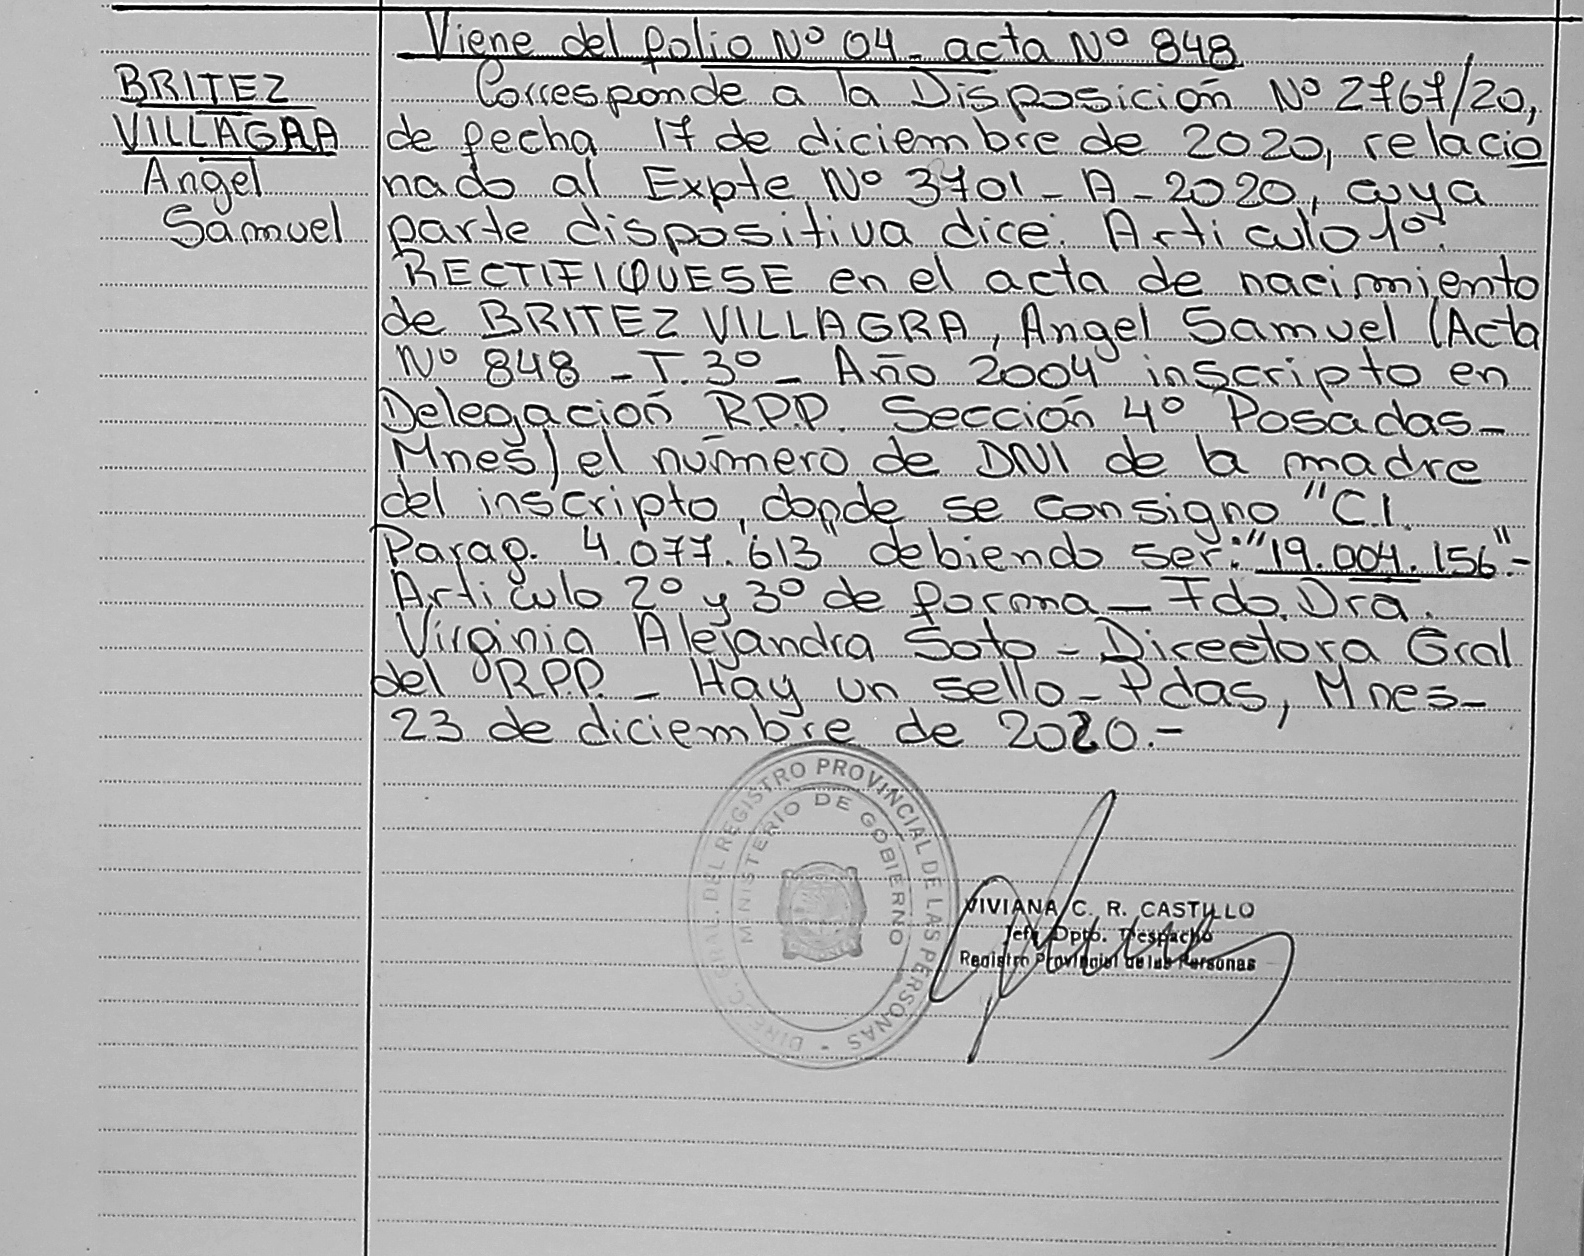 Viene del folio Nº 04 - acta Nº 848
BRITEZ
VILLAGRA
Angel
Samuel
Corresponde a la Disposición Nº 2767/20,
de fecha 17 de diciembre de 2020, relacio
nado al Expte Nº 3701 - A - 2020, cuya
parte dispositiva dice: Articulo 1º:
RECTIFIQUESE en el acta de nacimiento
de BRITEZ VILLAGRA, Angel Samuel (Acta
Nº 848 - T. 3º - Año 2004 inscripto en
Delegación R.P.P. Sección 4º Posadas -
Mnes) el número de DNI de la madre
del inscripto, donde se consigno "C.I.
Parag. 4.077.613" debiendo ser: "19.004.156".-
Articulo 2º y 3º de forma - Fdo. Dra.
Virginia Alejandra Soto - Directora Gral
del R.P.P. - Hay un sello - Pdas, Mnes -
23 de diciembre de 2020.-
DIREC. GRAL. DEL REGISTRO PROVINCIAL DE LAS PERSONAS -
MINISTERIO DE GOBIERNO
VIVIANA C. R. CASTILLO
Jefa Dpto. Despacho
Registro Provincial de las Personas